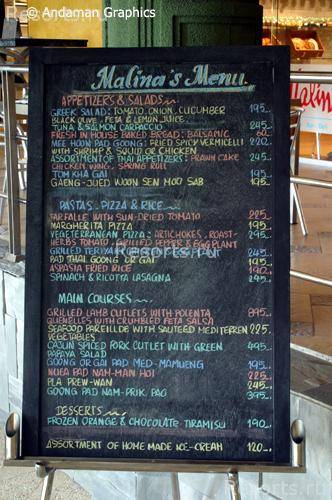 © Andaman Graphics
Malina's Menu
APPETIZERS & SALADS
GREEK SALAD: TOMATO, ONION, CUCUMBER 195.-
BLACK OLIVE, FETA & LEMON JUICE
TUNA & SALMON CARPACCIO 245.-
FRESH IN HOUSE BAKED BREAD: BALSAMIC 60.-
MEE HOON PAD GOONG: FRIED SPICY VERMICELLI 220.-
WITH SHRIMP & SQUID OR CHICKEN
ASSORTMENT OF THAI APPETIZERS: PRAWN CAKE 245.-
CHICKEN WING, SPRING ROLL
TOM KHA GAI 195.-
GAENG-JUED WOON SEN MOO SAB 195.-
PASTAS, PIZZA & RICE
FARFALLE WITH SUN-DRIED TOMATO 225.-
MARGHERITA PIZZA 195.-
VEGETERRANEAN PIZZA: ARTICHOKES, ROAST- 295.-
HERBS TOMATO, GRILLED PEPPER & EGGPLANT
GRILLED TERIYAKI 245.-
PAD THAI GOONG OR GAI
ASPASIA FRIED RICE 190.-
SPINACH & RICOTTA LASAGNA 245.-
Resorts.ru
MAIN COURSES
GRILLED LAMB CUTLETS WITH POLENTA 895.-
QUENELLES WITH CRUMBLED FETA SALSA
SEAFOOD PAREILLDE WITH SAUTEED MEDITERREN 225.-
VEGETABLES
CAJUN SPICED PORK CUTLET WITH GREEN 495.-
PAPAYA SALAD
GOONG OR GAI PAD MED-MAMUENG 195.-
NUEA PAD NAM-MAN HOI 225.-
PLA PREW-WAN 245.-
GOONG PAD NAM-PRIK PAO 395.-
DESSERTS
FROZEN ORANGE & CHOCOLATE TIRAMISU 190.-
ASSORTMENT OF HOME MADE ICE-CREAM 120.-
alina